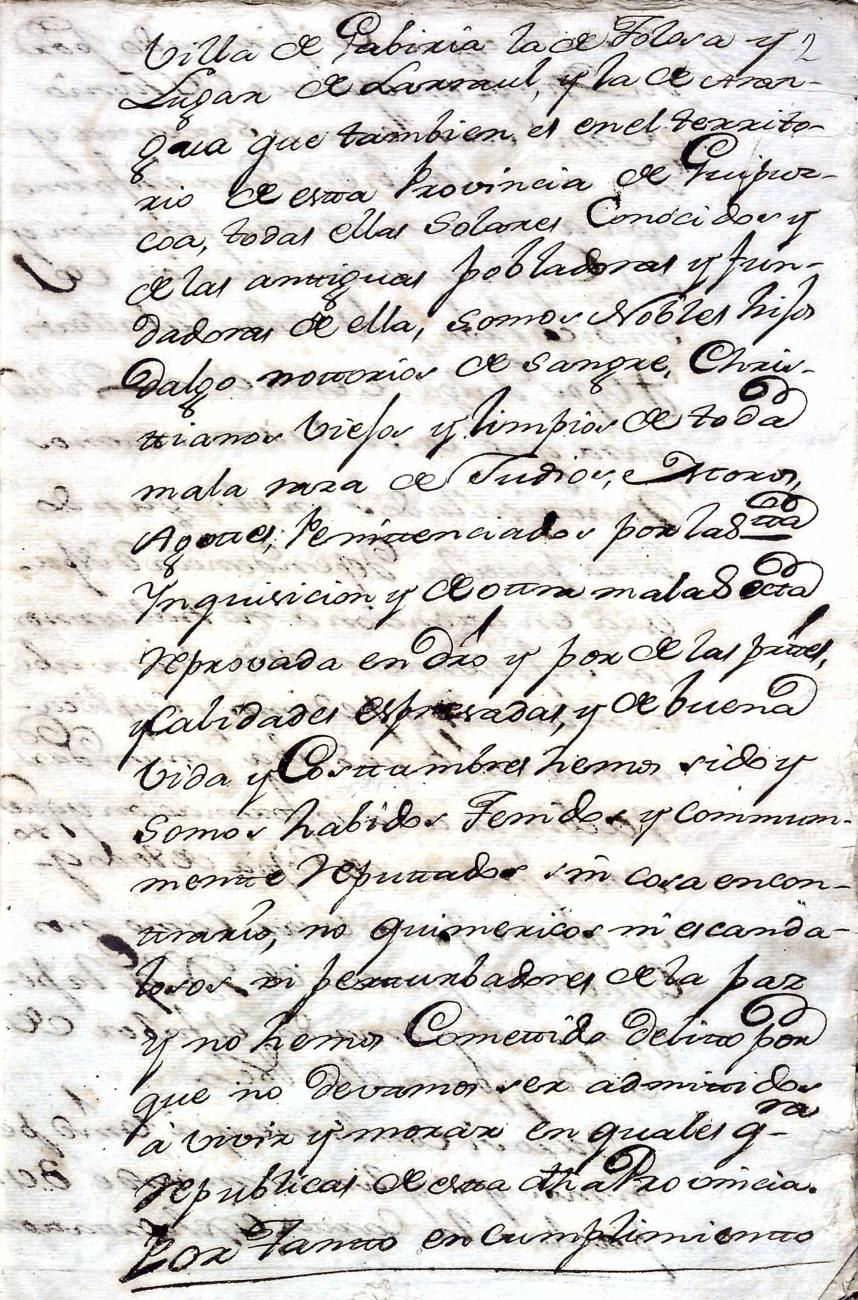 Villa de Gabiria la de Tolosa y 2
Lugar de Larraul, y la de Aran-
gua que tambien es en el territo-
rio de estta Provincia de Guipuz-
coa, todas ellas Solares Conocidos y
de las anttiguas pobladoras y fun-
dadoras de ella, somos Nobles hijos
dalgo nottorios de sangre, Chris-
ttianos Viejos y limpios de toda
mala raza de Judios, e Moros,
Agottes, Penittenciados por la Stta
Ynquisicion y de ottra mala Sectta
reprovada en dro y por de las prttes,
y Calidades espresadas, y de buena
Vida y Costtumbres hemos sido y
somos habidos Tenidos y commun-
mentte Reputtados sin cosa en con-
ttrario, no quimericos ni escanda-
losos ni pertturbadores de la paz
y no hemos Comettido delitto por
que no devamos ser admittidos
à vivir y morar en quales qra
Republicas de estta dha Provincia.
Por Tantto en cumplimientto